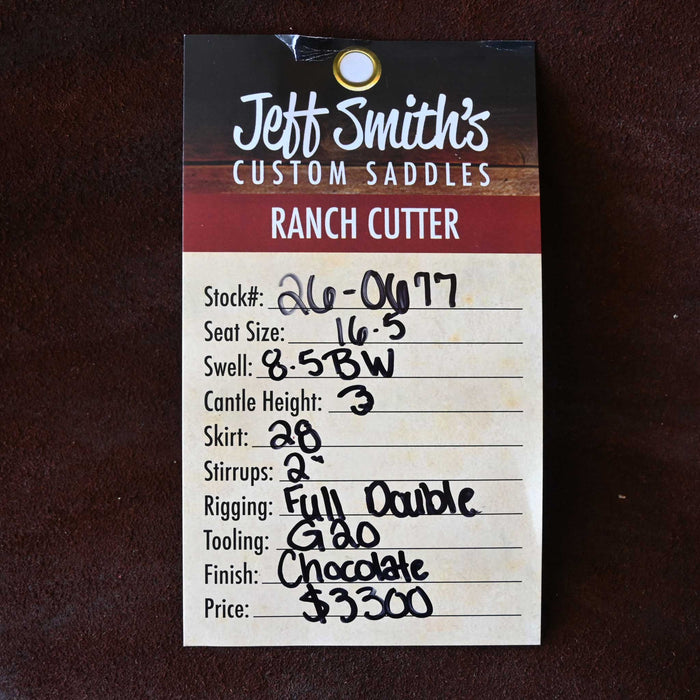 Jeff Smith's
CUSTOM SADDLES
RANCH CUTTER
Stock#: 26-0677
Seat Size: 16.5
Swell: 8.5BW
Cantle Height: 3
Skirt: 28
Stirrups: 2"
Rigging: Full Double
Tooling: G20
Finish: Chocolate
Price: $3300